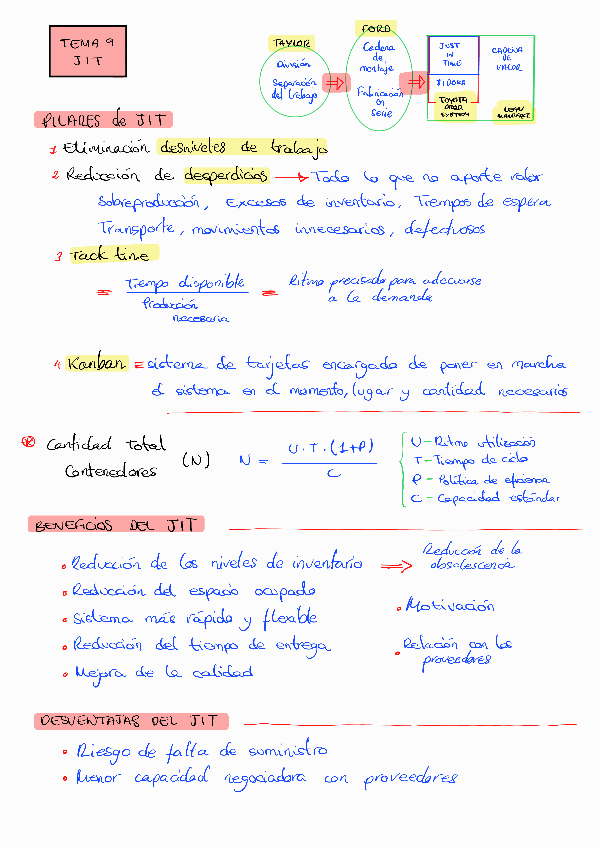 TEMA 9
JIT
TAYLOR
División
Separación
del trabajo
FORD
Cadena
de
montaje
Fabricación
en
serie
JUST
IN
TIME
JIDOKA
TOYOTA
SYSTEM
CADENA
DE
VALOR
LEAN
PILARES de JIT
1 Eliminación desniveles de trabajo
2 Reducción de desperdicios → Todo lo que no aporte valor
Sobreproducción, Excesos de inventario, Tiempos de espera
Transporte, movimientos innecesarios, defectuosos
3 Tack time
= Tiempo disponible / Producción necesaria = Ritmo precisado para adecuarse
a la demanda
4 Kanban = sistema de tarjetas encargado de poner en marcha
el sistema en el momento, lugar y cantidad necesarios
Cantidad total
Contenedores (N) N = U·T·(1+P) / C
U - Ritmo utilización
T - Tiempo de ciclo
P - Política de eficiencia
C - Capacidad estándar
BENEFICIOS DEL JIT
• Reducción de los niveles de inventario ⇒ Reducción de la
obsolescencia
• Reducción del espacio ocupado
• Sistema más rápido y flexible
• Reducción del tiempo de entrega
• Mejora de la calidad
• Motivación
• Relación con los
proveedores
DESVENTAJAS DEL JIT
• Riesgo de falta de suministro
• Menor capacidad negociadora con proveedores